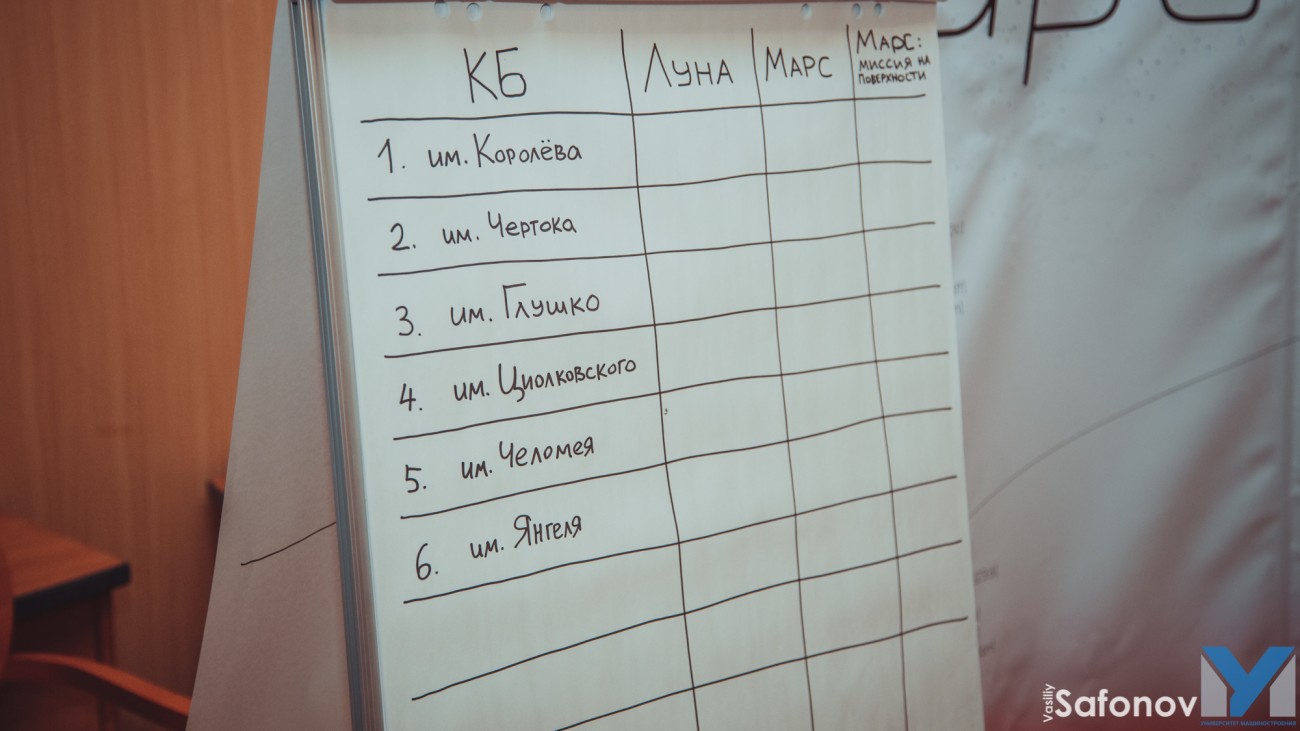 КБ Луна Марс Марс:
миссия на
поверхности
1. им. Королёва
2. им. Чертока
3. им. Глушко
4. им. Циолковского
5. им. Челомея
6. им. Янгеля
Vasiliy
Safonov
УНИВЕРСИТЕТ МАШИНОСТРОЕНИЯ